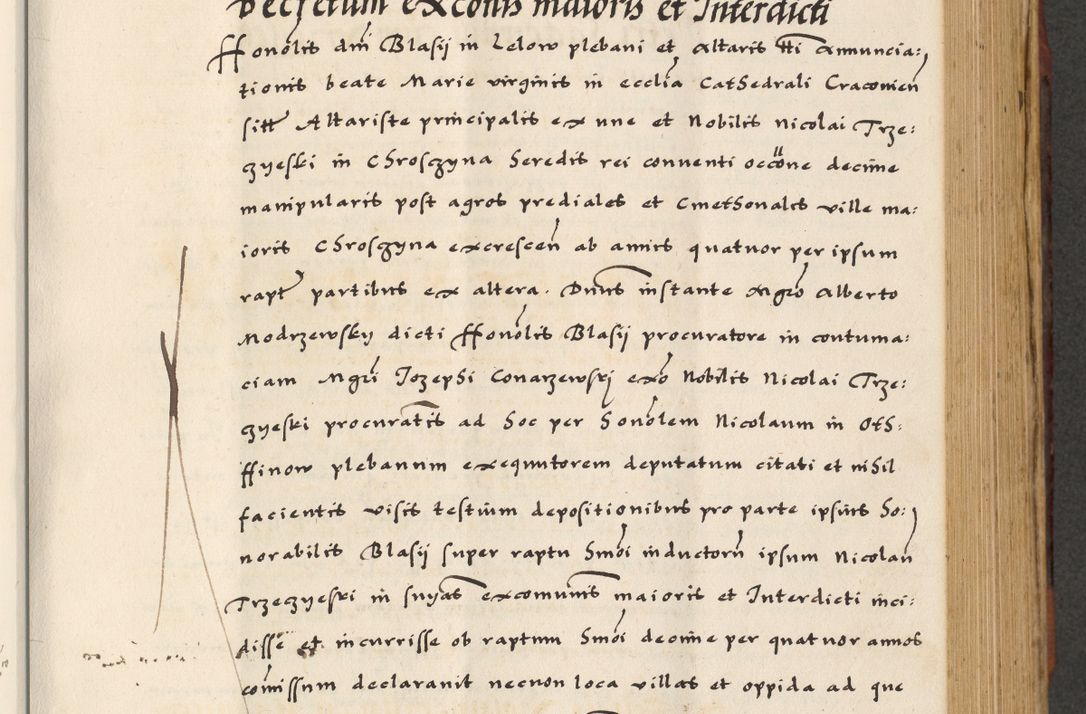 Decretum exconis maioris et Interdicti
Honolis dni Blasij in Lelow plebani et Altaris tti Annuncia:
tionis beate Marie virginis in ecclia Cathedrali Cracovien
sitt Altariste principalis ex une et Nobilis Nicolai Trze:
czyeski in Chrosczyna heredis rei conventi occone decime
manipularis post agros prediales et Cmethonales ville ma:
ioris Chrosczyna excrescen ab annis quatuor per ipsum
rapt partibus ex altera. Dnus instante Mgro Alberto
Modrzewsky dicti Honolis Blasij procuratore in contuma:
ciam Mgri Jozephi Conarzewski exo Nobilis Nicolai Trze:
czyeski procuratis ad hoc per honolem Nicolaum in Oth:
ffinow plebanum exequutorem deputatum citati et nihil
facientis visis testium depositionibus pro parte ipsius ho:
norabilis Blasij super raptu hmoi inductorn ipsum Nicolan
Trzeczyeski in snyas excomunis maioris et Interdicti inci:
disse et incurrisse ob raptum hmoi decime per quatuor annos
comissum declaravit necnon loca villas et oppida ad que